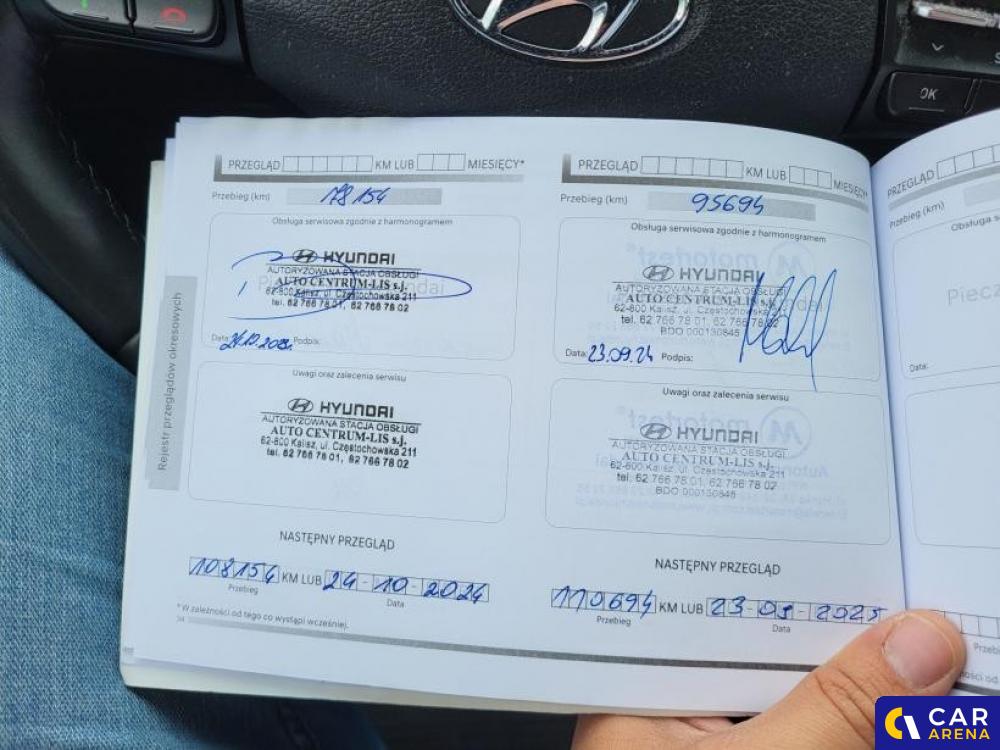 OK
PRZEGLĄD KM LUB MIESIĘCY*
Przebieg (km) 78154
Obsługa serwisowa zgodnie z harmonogramem
HYUNDAI
AUTORYZOWANA STACJA OBSŁUGI
AUTO CENTRUM-LIS s.j.
62-800 Kalisz, ul. Częstochowska 211
tel. 62 766 78 01, 62 766 78 02
Data: Podpis:
Uwagi oraz zalecenia serwisu
HYUNDAI
AUTORYZOWANA STACJA OBSŁUGI
AUTO CENTRUM-LIS s.j.
62-800 Kalisz, ul. Częstochowska 211
tel. 62 766 78 01, 62 766 78 02
NASTĘPNY PRZEGLĄD
108154 KM LUB 24-10-2024
Przebieg Data
* W zależności od tego co wystąpi wcześniej.
34
Rejestr przeglądów okresowych
PRZEGLĄD KM LUB MIESIĘCY*
Przebieg (km) 95694
Obsługa serwisowa zgodnie z harmonogramem
HYUNDAI
AUTORYZOWANA STACJA OBSŁUGI
AUTO CENTRUM-LIS s.j.
62-800 Kalisz, ul. Częstochowska 211
tel. 62 766 78 01, 62 766 78 02
BDO 000130845
Data: 23.09.24 Podpis:
Uwagi oraz zalecenia serwisu
HYUNDAI
AUTORYZOWANA STACJA OBSŁUGI
AUTO CENTRUM-LIS s.j.
62-800 Kalisz, ul. Częstochowska 211
tel. 62 766 78 01, 62 766 78 02
BDO 000130845
NASTĘPNY PRZEGLĄD
110694 KM LUB 23-09-2025
Przebieg Data
PRZEGLĄD
Przebieg (km)
Data:
CAR
ARENA